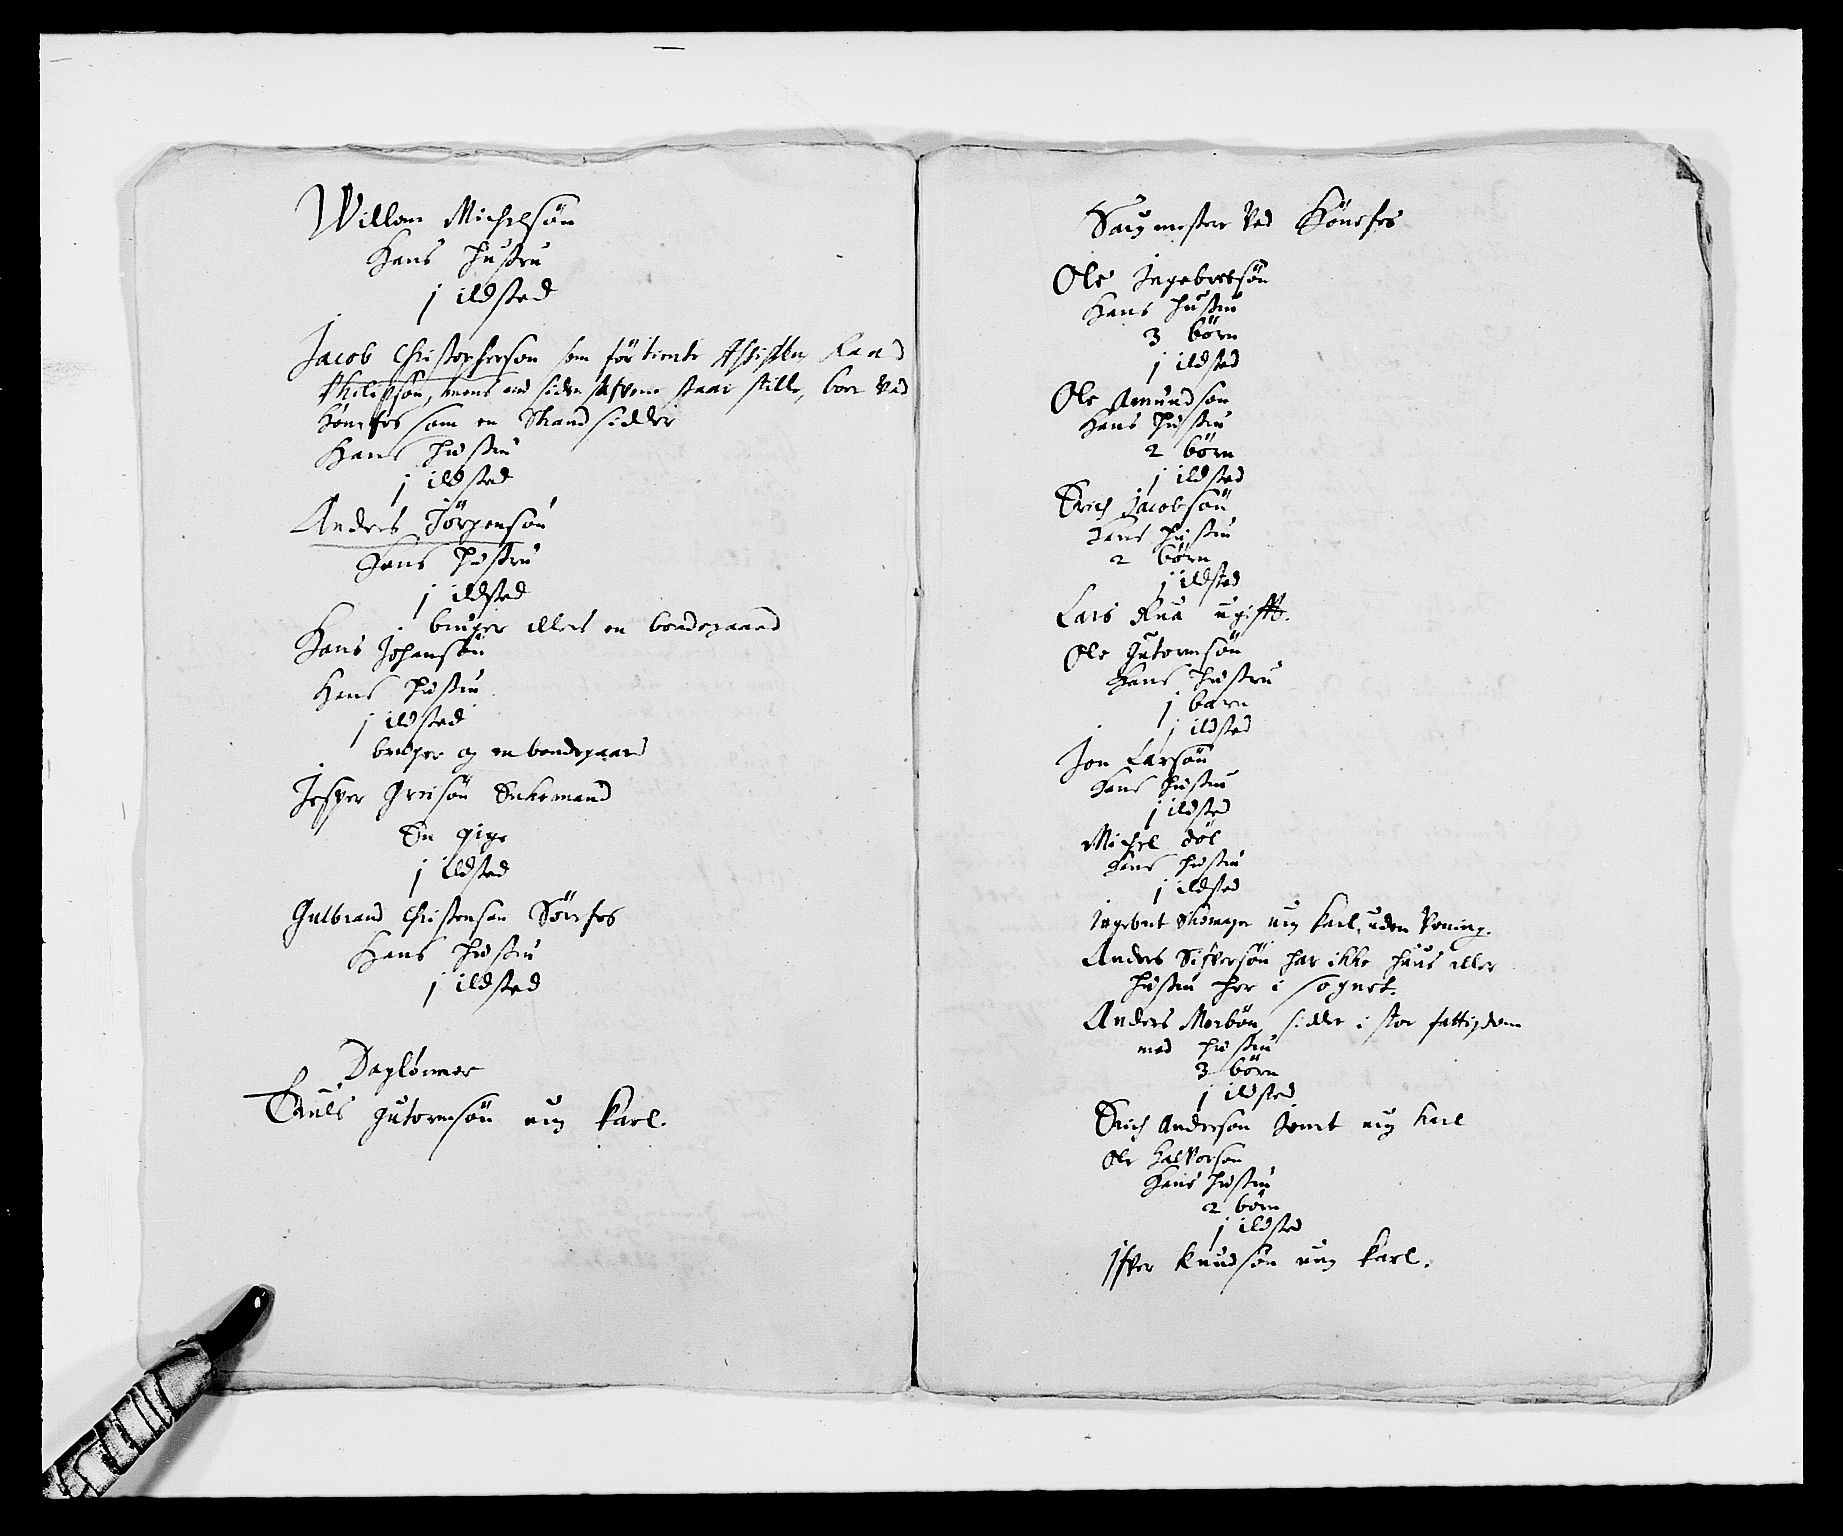 Willom Michelsøn
Hans Hustru
j ildsted
Jacob Christophersøn som før tiente
Philipsøn, mens nu siden staar stille, boer Ved
Hønefos som en Strandsidder
Hans Hustru
j ildsted
Anders Jörgensøn
Hans Hustru
j ildsted
bruger ellers en bondegaard
Hans Johansøn
Hans Hustru
j ildsted
bruger og en bondegaard
Jesper Griisøn Enkemand
En pige
j ildsted
Gulbrand Christensøn
Hans Hustru
j ildsted
Daglønner
Truls Gutormsøn ung Karl.
Saugmestere Ved Hönefos
Ole Ingebretsøn
Hans Hustru
3 börn
j ildsted
Ole Amundsøn
Hans Hustru
2 börn
j ildsted
Erich Jacobsøn
Hans Hustru
2 börn
j ildsted
Lars Rua ugifft.
Ole Gutormsøn
Hans Hustru
j barn
j ildsted
Jon Larsøn
Hans Hustru
j ildsted
Michel Döl
Hans Hustru
j ildsted
Ingebret Skomager ung Karl, uden Vaning.
Anders Siffversøn har ikke Huus eller
Hustru her i Sognet.
Anders Morbön, sidder i stor fattigdom
med Hustru
3 börn
j ildsted
Erich Andersøn ung Karl
Ole Halvorsøn
Hans Hustru
2 börn
j ildsted
Iffver Knudsøn ung Karl.